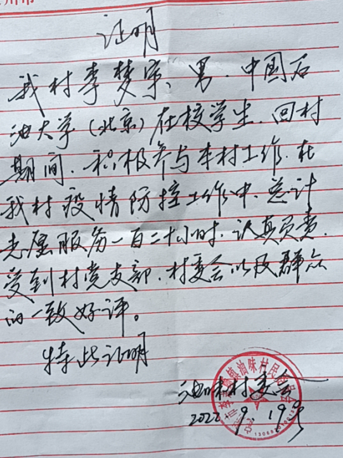 证明
我村李梦宇、男、中国石
油大学(北京)在校学生,回村
期间,积极参与本村工作,在
我村疫情防控工作中,总计
志愿服务一百二十小时,认真负责,
受到村党支部、村委会以及群众
的一致好评。
特此证明
油味村委会
2022.9.19号